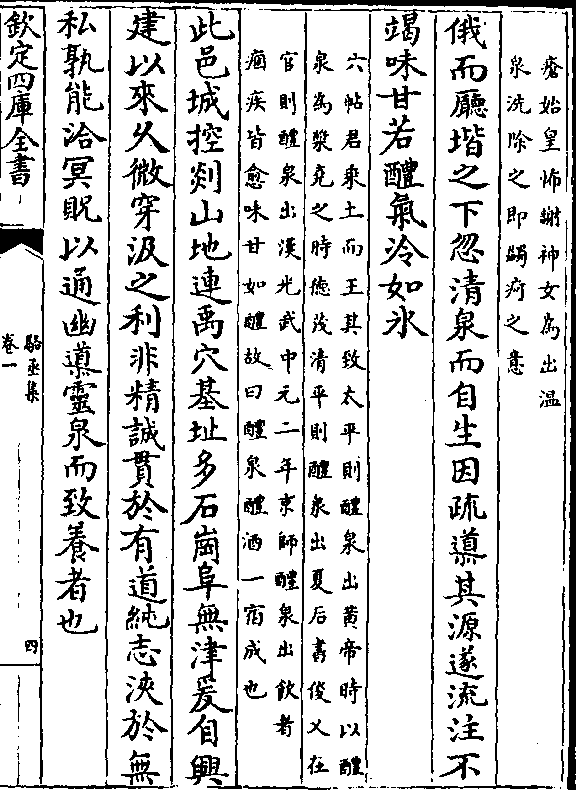 瘡始皇怖謝神女為出温
泉洗除之即蠲疴之意
俄而㕔堦之下忽清泉而自生因疏導其源遂流注不
竭味甘若醴氣冷如氷
六帖君乘土而王其致太平則醴泉出黄帝時以醴
泉為漿堯之時德茂清平則醴泉出夏后書俊乂在
官則醴泉出漢光武中元二年京師醴泉出飲者
痼疾皆愈味甘如醴故曰醴泉醴酒一宿成也
此邑城控剡山地連禹穴基址多石崗阜無津爰自興
建以來久微穿汲之利非精誠貫於有道純志浹於無
私孰能洽冥貺以通幽導靈泉而致養者也
欽定四庫全書
駱丞集
卷一
四